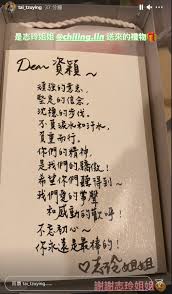 tai_tzuying 37 分鐘
是志玲姐姐 @chiling.lin 送來的禮物
Dear 資穎～
頑強的意志,
堅定的信念,
沈穩的步伐。
不負淚水和汗水,
負重而行。
你們的精神,
是我們的驕傲!
希望你們聽得到～
我們愛的掌聲
和感動的歡呼!
不忘初心～
你永遠是最棒的!
♡志玲姐姐
謝謝志玲姐姐
回覆 tai_tzuying......